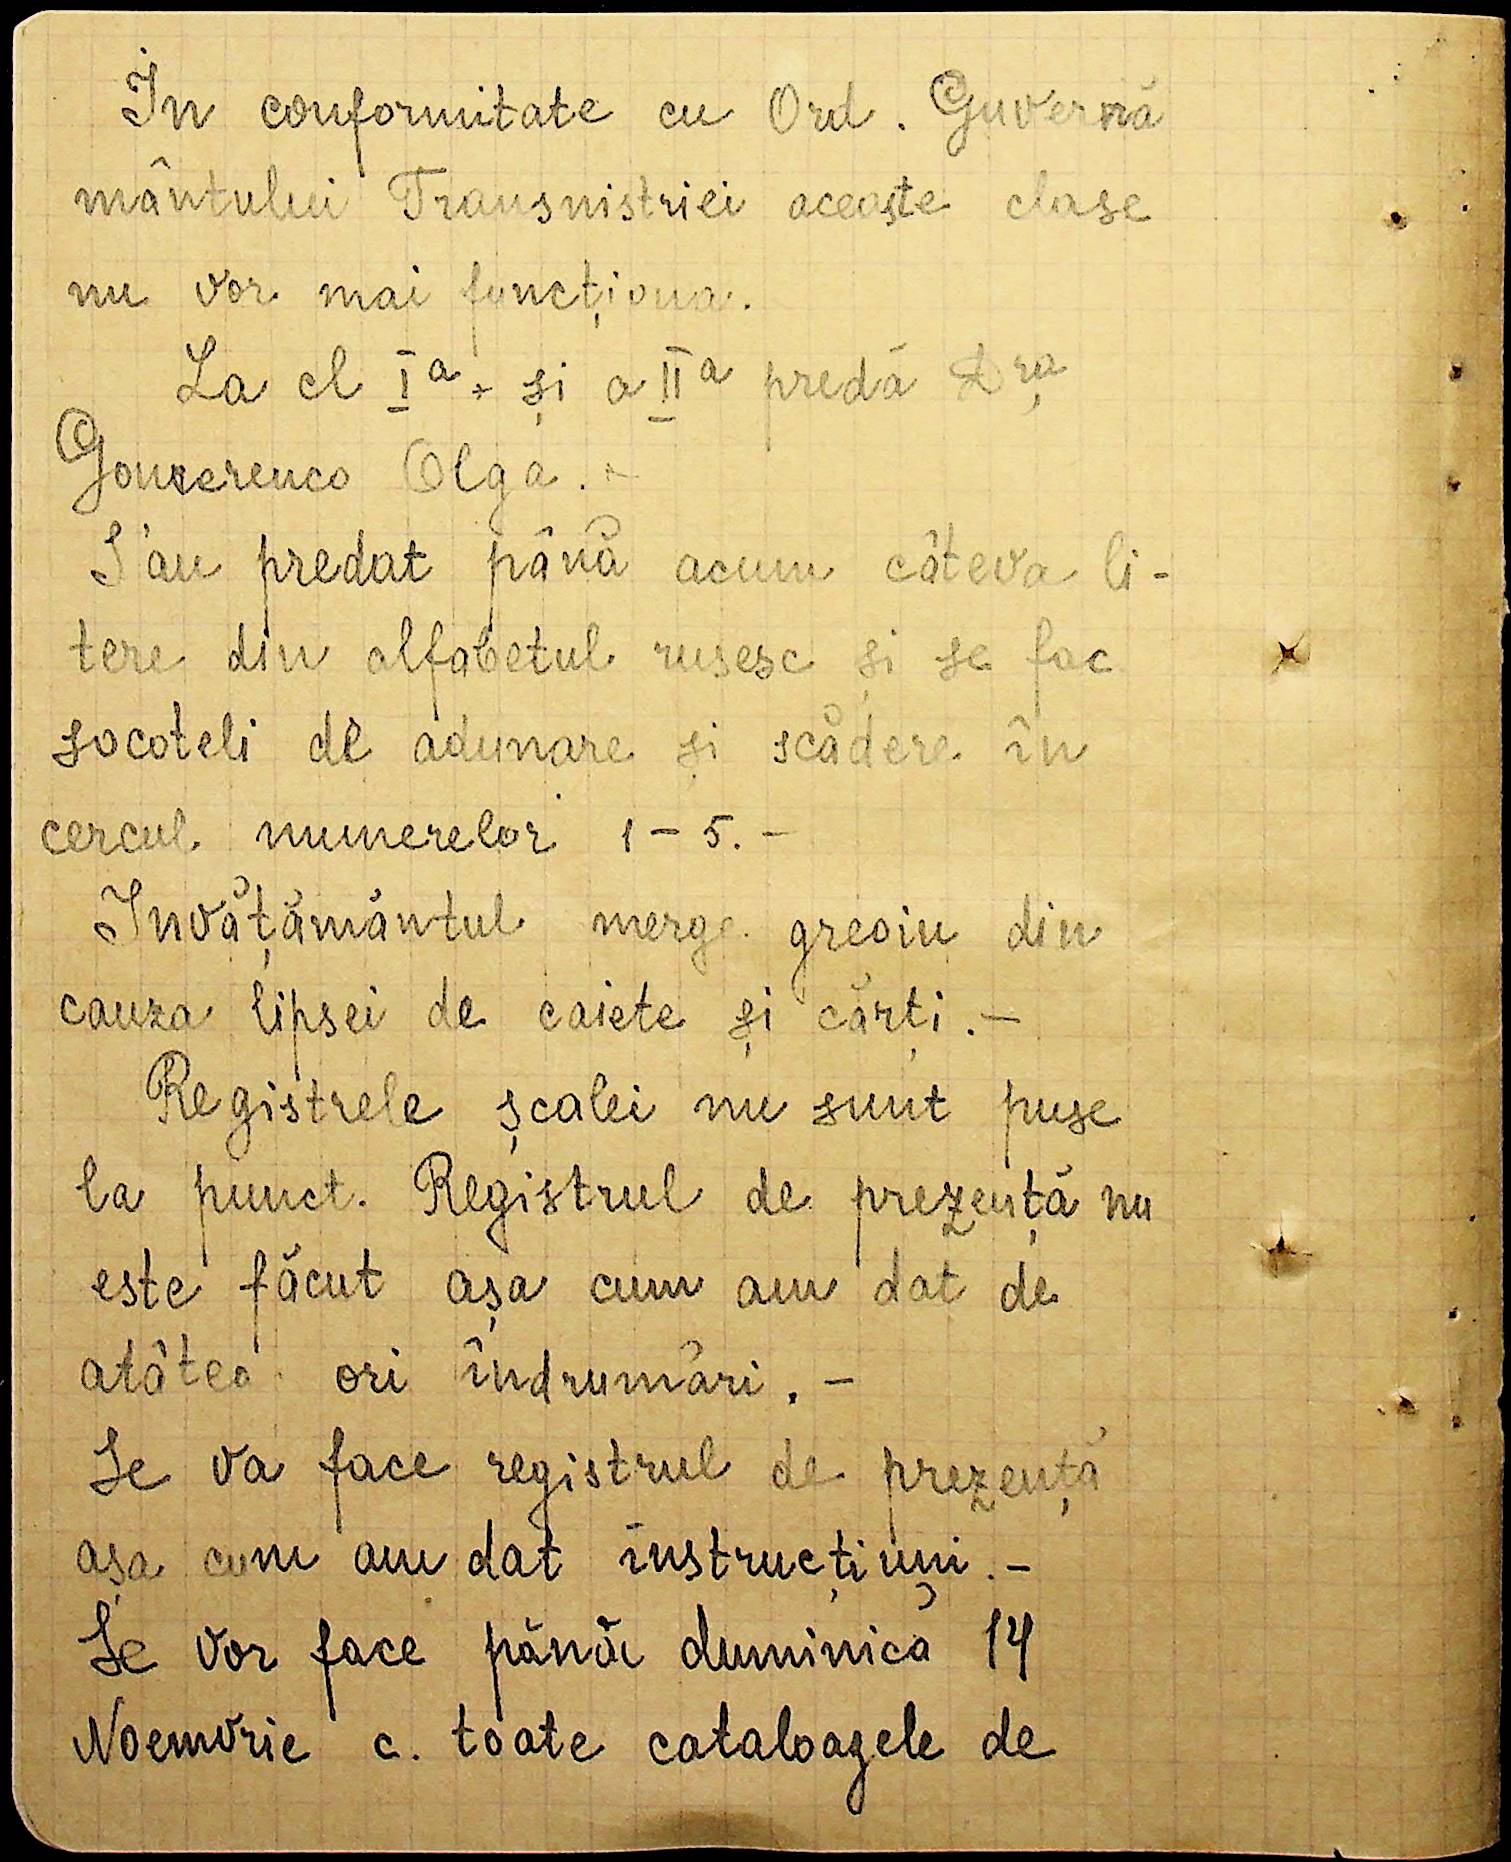 În conformitate cu Ord. Guvernă
mântului Transnistriei aceaște clase
nu vor mai funcționa.
La cl Iª. și a IIª predă D-ra
Olga. -
S'au predat până acum câteva li-
tere din alfabetul rusesc și se fac
socoteli de adunare și scădere în
cercul numerelor 1 - 5. -
Invățământul merge greoiu din
cauza lipsei de caiete și cărți. -
Registrele școalei nu sunt puse
la punct. Registrul de prezență nu
este făcut așa cum am dat de
atâtea ori îndrumări. -
Se va face registrul de prezență
așa cum am dat instrucțiuni. -
Se vor face până duminică 14
Noemvrie c. toate cataloagele de